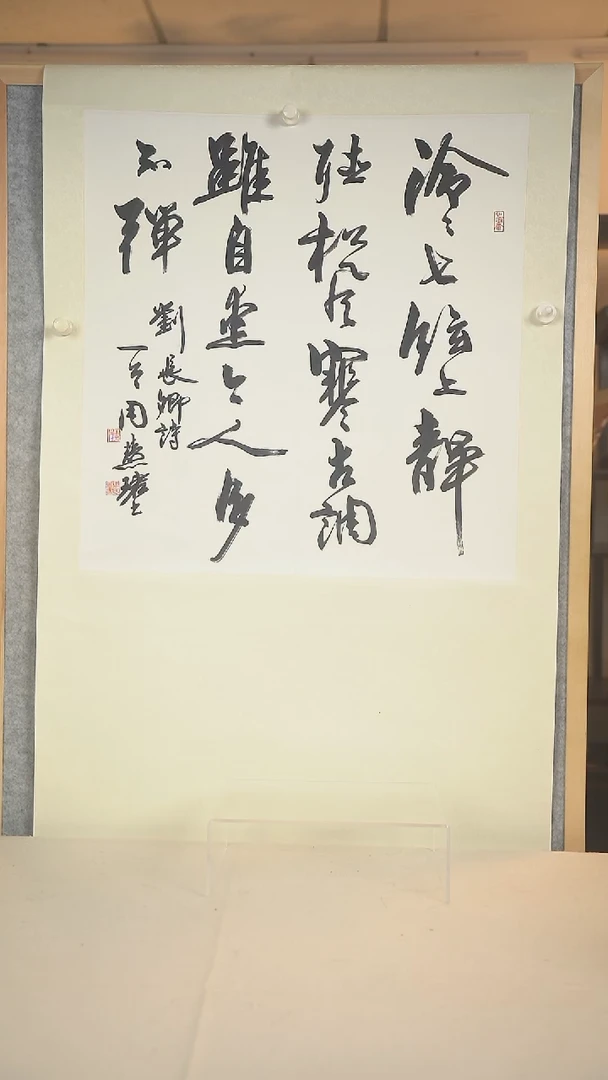 泠泠七絃上靜
聽松風寒古調
雖自愛今人多
不彈
劉長卿詩
一首周慧珺